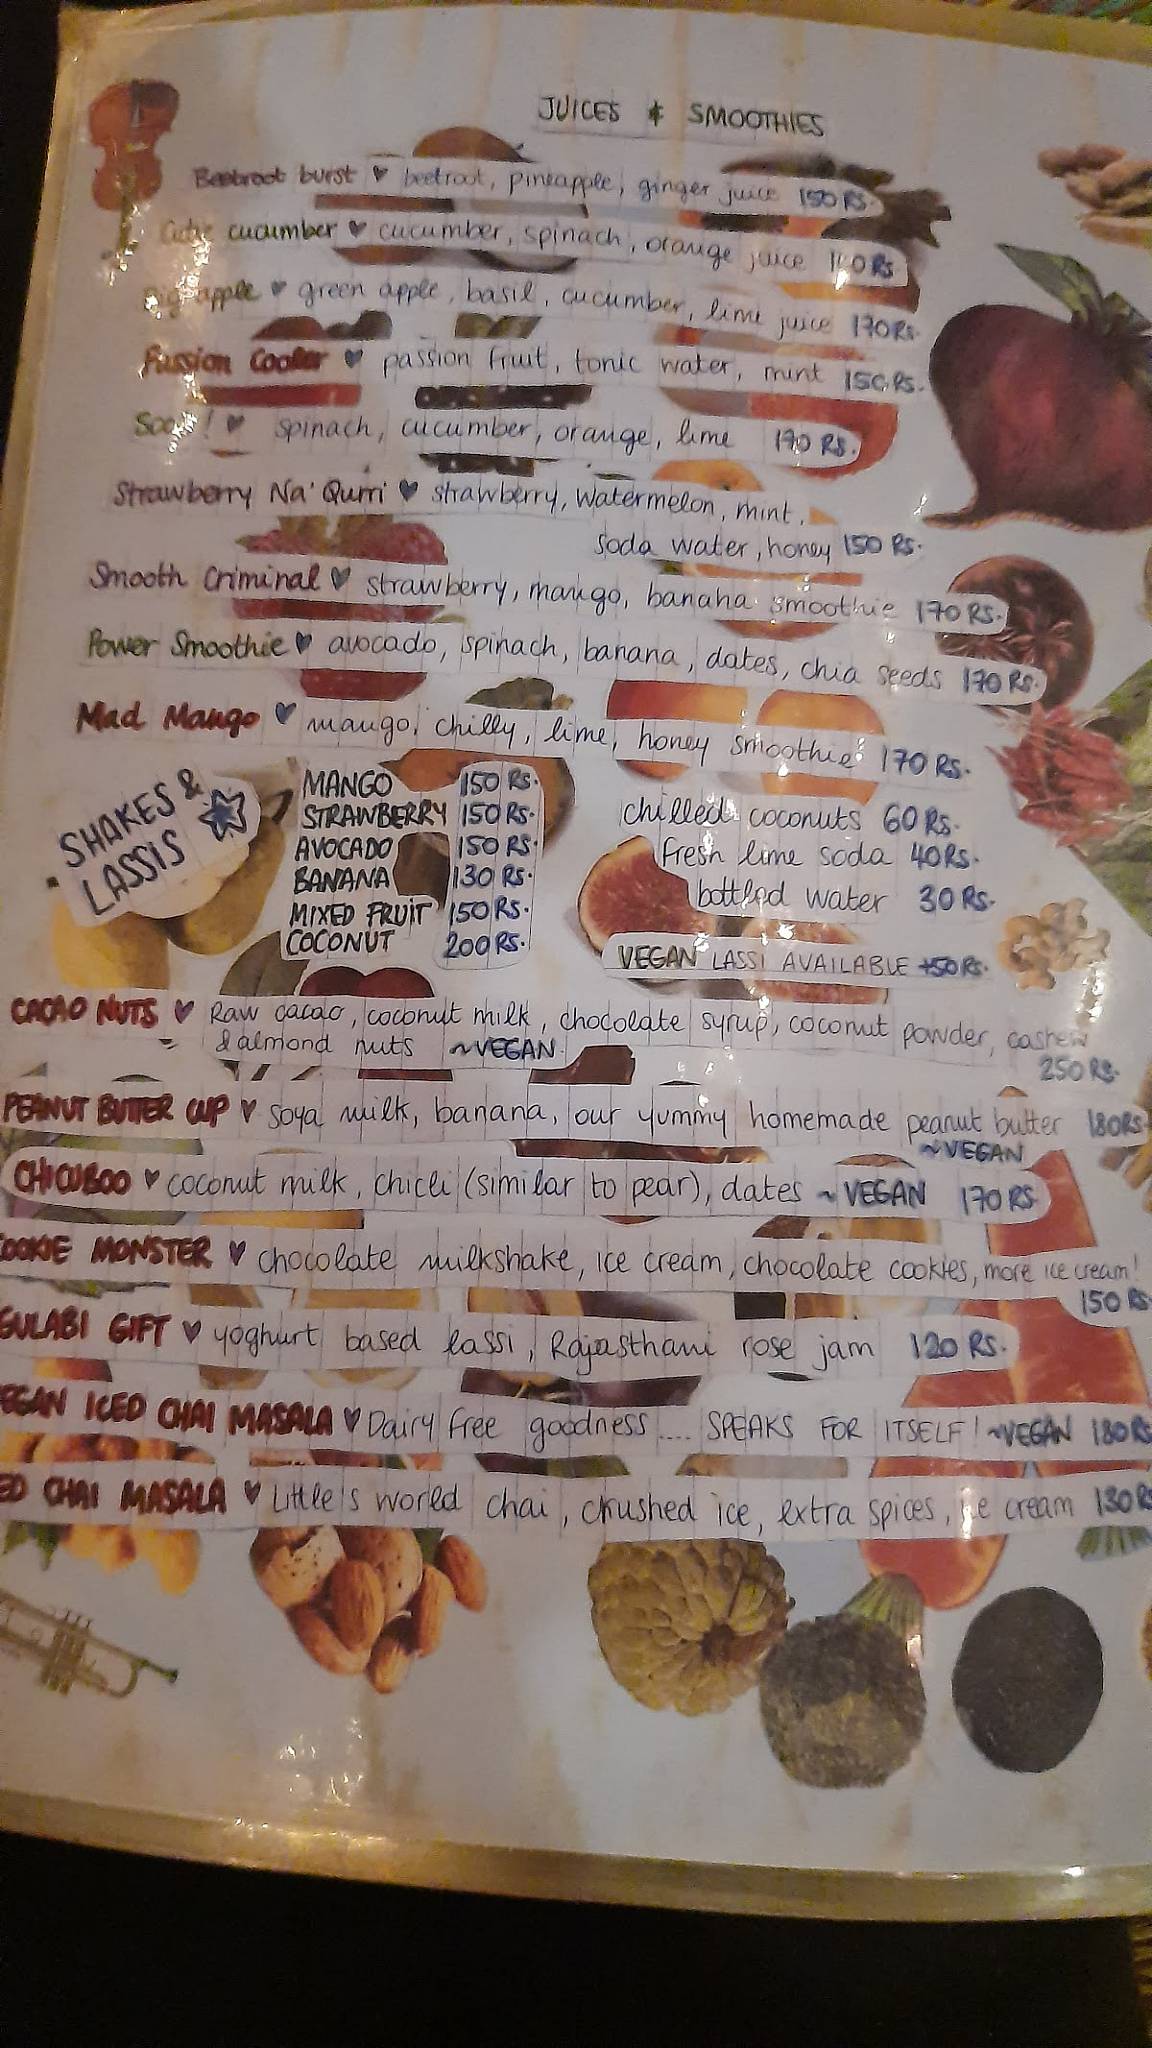 JUICES & SMOOTHIES
Beetroot burst ♥ beetroot, pineapple, ginger juice 150 RS.
Cutie cucumber ♥ cucumber, spinach, orange juice RS
Big apple ♥ green apple, basil, cucumber, lime juice 170 RS.
Passion Cooler ♥ passion fruit, tonic water, mint 150 RS.
♥ spinach, cucumber, orange, lime 170 RS.
Strawberry Na' Qurri ♥ strawberry, watermelon, mint,
soda water, honey 150 RS.
Smooth Criminal ♥ strawberry, mango, banana smoothie 170 RS.
Power Smoothie ♥ avocado, spinach, banana, dates, chia seeds 170 RS.
Mad Mango ♥ mango, chilly, lime, honey smoothie 170 RS.
SHAKES &
LASSIS
MANGO 150 RS.
STRAWBERRY 150 RS.
AVOCADO 150 RS.
BANANA 130 RS.
MIXED FRUIT 150 RS.
COCONUT 200 RS.
chilled coconuts 60 RS.
fresh lime soda 40 RS.
bottled water 30 RS.
VEGAN LASSI AVAILABLE +50 RS.
CACAO NUTS ♥ Raw cacao, coconut milk, chocolate syrup, coconut powder, cashew
& almond nuts ~VEGAN
250 RS.
PEANUT BUTTER CUP ♥ soya milk, banana, our yummy homemade peanut butter 180 RS
~VEGAN
CHICUBOO ♥ coconut milk, chicu (similar to pear), dates ~VEGAN 170 RS
COOKIE MONSTER ♥ chocolate milkshake, ice cream, chocolate cookies, more ice cream!
150 RS
GULABI GIFT ♥ yoghurt based lassi, Rajasthani rose jam 120 RS.
VEGAN ICED CHAI MASALA ♥ Dairy free goodness.... SPEAKS FOR ITSELF! ~VEGAN 180 RS
ED CHAI MASALA ♥ Little's world chai, crushed ice, extra spices, ice cream 130 RS